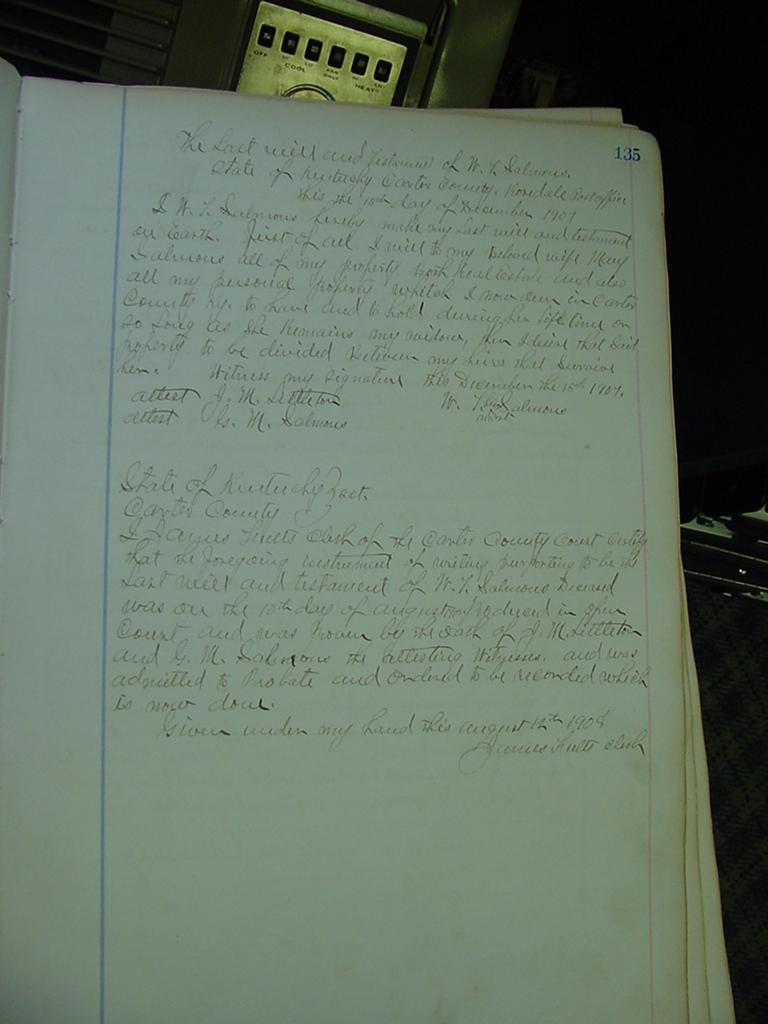 OFF HI LO FAN HI LO
COOL ONLY HEAT
135
The Last will and Testament of W. T. Salmons.
State of Kentucky Carter County. Rosedale Post office
this the 15th day of December 1907
I W. T. Salmons hereby make my Last will and testament
on Earth. First of all I will to my Beloved wife Mary
Salmons all of my property Both Real Estate and also
all my personal property which I now own in Carter
County Ky. to have and to hold during her life time or
so Long as She Remains my widow, then I desire that Said
property to be divided Between my heirs that Survive
her. Witness my Signature this December the 15th 1907.
attest J. M. Littleton W. T. his Salmons
attest G. M. Salmons mark
State of Kentucky } sct.
Carter County
I James Kults clerk of the Carter County Court Certify
that the foregoing instrument of writing purporting to be the
Last will and testament of W. T. Salmons Deceased
was on the 10th day of august Produced in open
Court and was Proven by the Oath of J. M. Littleton
and G. M. Salmons the attesting Witnesses. and was
admitted to Probate and ordered to be recorded which
is now done.
Given under my hand this august 12th 1908
James clerk